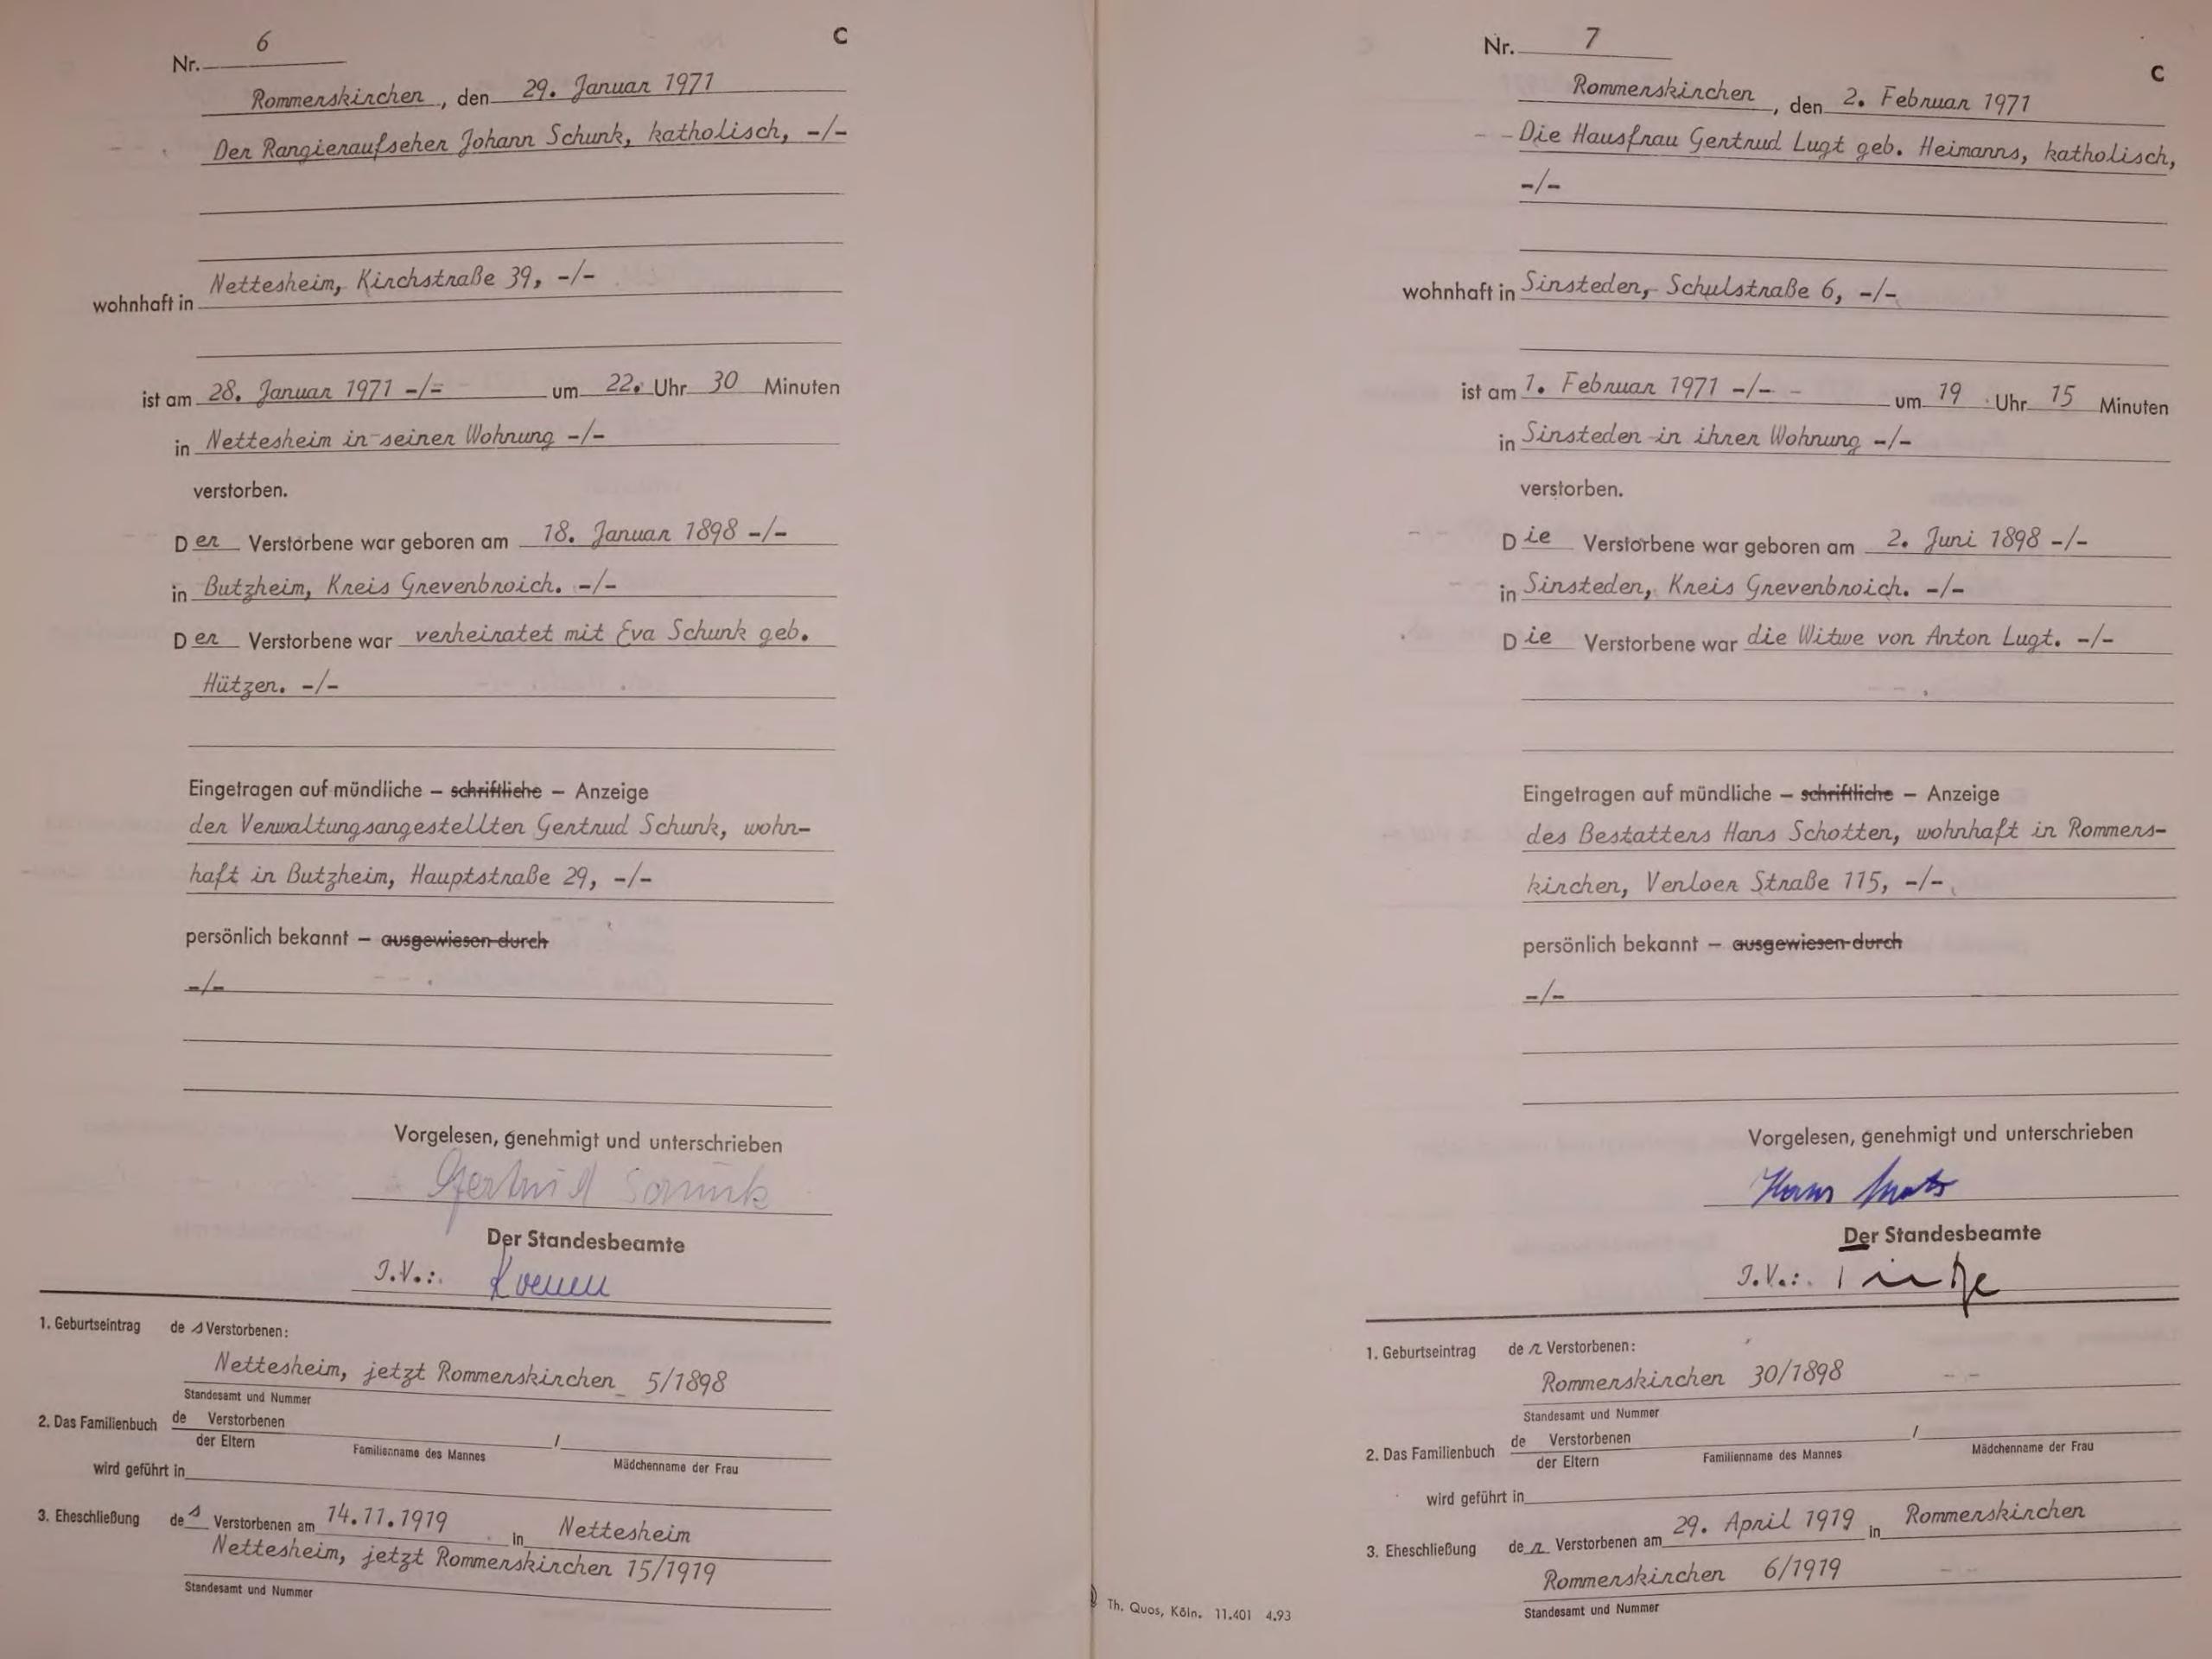 Nr. 6
C
Rommerskirchen, den 29. Januar 1971
Der Rangieraufseher Johann Schunk, katholisch, -/-
wohnhaft in Nettesheim, Kirchstraße 39, -/-
ist am 28. Januar 1971 -/- um 22. Uhr 30 Minuten
in Nettesheim in seiner Wohnung -/-
verstorben.
Der Verstorbene war geboren am 18. Januar 1898 -/-
in Butzheim, Kreis Grevenbroich. -/-
Der Verstorbene war verheiratet mit Eva Schunk geb.
Hützen. -/-
Eingetragen auf mündliche – schriftliche – Anzeige
der Verwaltungsangestellten Gertrud Schunk, wohn-
haft in Butzheim, Hauptstraße 29, -/-
persönlich bekannt – ausgewiesen durch
-/-
Vorgelesen, genehmigt und unterschrieben
Gertrud Schunk
Der Standesbeamte
I.V.:
1. Geburtseintrag des Verstorbenen:
Nettesheim, jetzt Rommerskirchen 5/1898
Standesamt und Nummer
2. Das Familienbuch de Verstorbenen
der Eltern
/
Familienname des Mannes Mädchenname der Frau
wird geführt in
3. Eheschließung des Verstorbenen am 14.11.1919 in Nettesheim
Nettesheim, jetzt Rommerskirchen 15/1919
Standesamt und Nummer
Nr. 7
C
Rommerskirchen, den 2. Februar 1971
Die Hausfrau Gertrud Lugt geb. Heimanns, katholisch,
-/-
wohnhaft in Sinsteden, Schulstraße 6, -/-
ist am 1. Februar 1971 -/- um 19 Uhr 15 Minuten
in Sinsteden in ihrer Wohnung -/-
verstorben.
Die Verstorbene war geboren am 2. Juni 1898 -/-
in Sinsteden, Kreis Grevenbroich. -/-
Die Verstorbene war die Witwe von Anton Lugt. -/-
Eingetragen auf mündliche – schriftliche – Anzeige
des Bestatters Hans Schotten, wohnhaft in Rommers-
kirchen, Venloer Straße 115, -/-
persönlich bekannt – ausgewiesen durch
-/-
Vorgelesen, genehmigt und unterschrieben
Hans
Der Standesbeamte
I.V.:
1. Geburtseintrag der Verstorbenen:
Rommerskirchen 30/1898
Standesamt und Nummer
2. Das Familienbuch de Verstorbenen
der Eltern
/
Familienname des Mannes Mädchenname der Frau
wird geführt in
3. Eheschließung der Verstorbenen am 29. April 1919 in Rommerskirchen
Rommerskirchen 6/1919
Standesamt und Nummer
Th. Quos, Köln. 11.401 4.93